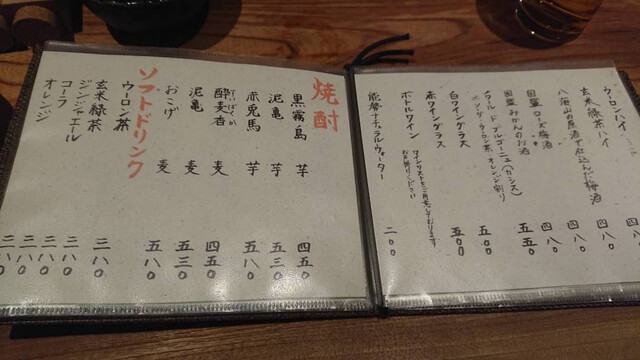 ウーロンハイ 四八〇
玄米緑茶ハイ 四八〇
八海山の原酒で仕込んだ梅酒
国盛 ローズ梅酒 四八〇
国盛 みかんのお酒 五五〇
クレール ド ブルゴーニュ(カシス) 五〇〇
白ワイングラス 五〇〇
赤ワイングラス
ボトルワイン
能登ナチュラルウォーター 二〇〇
焼酎
黒霧島 芋 四五〇
泥亀 芋 五三〇
赤兎馬 芋 五八〇
酔麦香 麦 四五〇
泥亀 麦 五三〇
おこげ 麦 五八〇
ソフトドリンク
ウーロン茶
玄米緑茶 三八〇
ジンジャエール 三八〇
コーラ 三八〇
オレンジ 三八〇